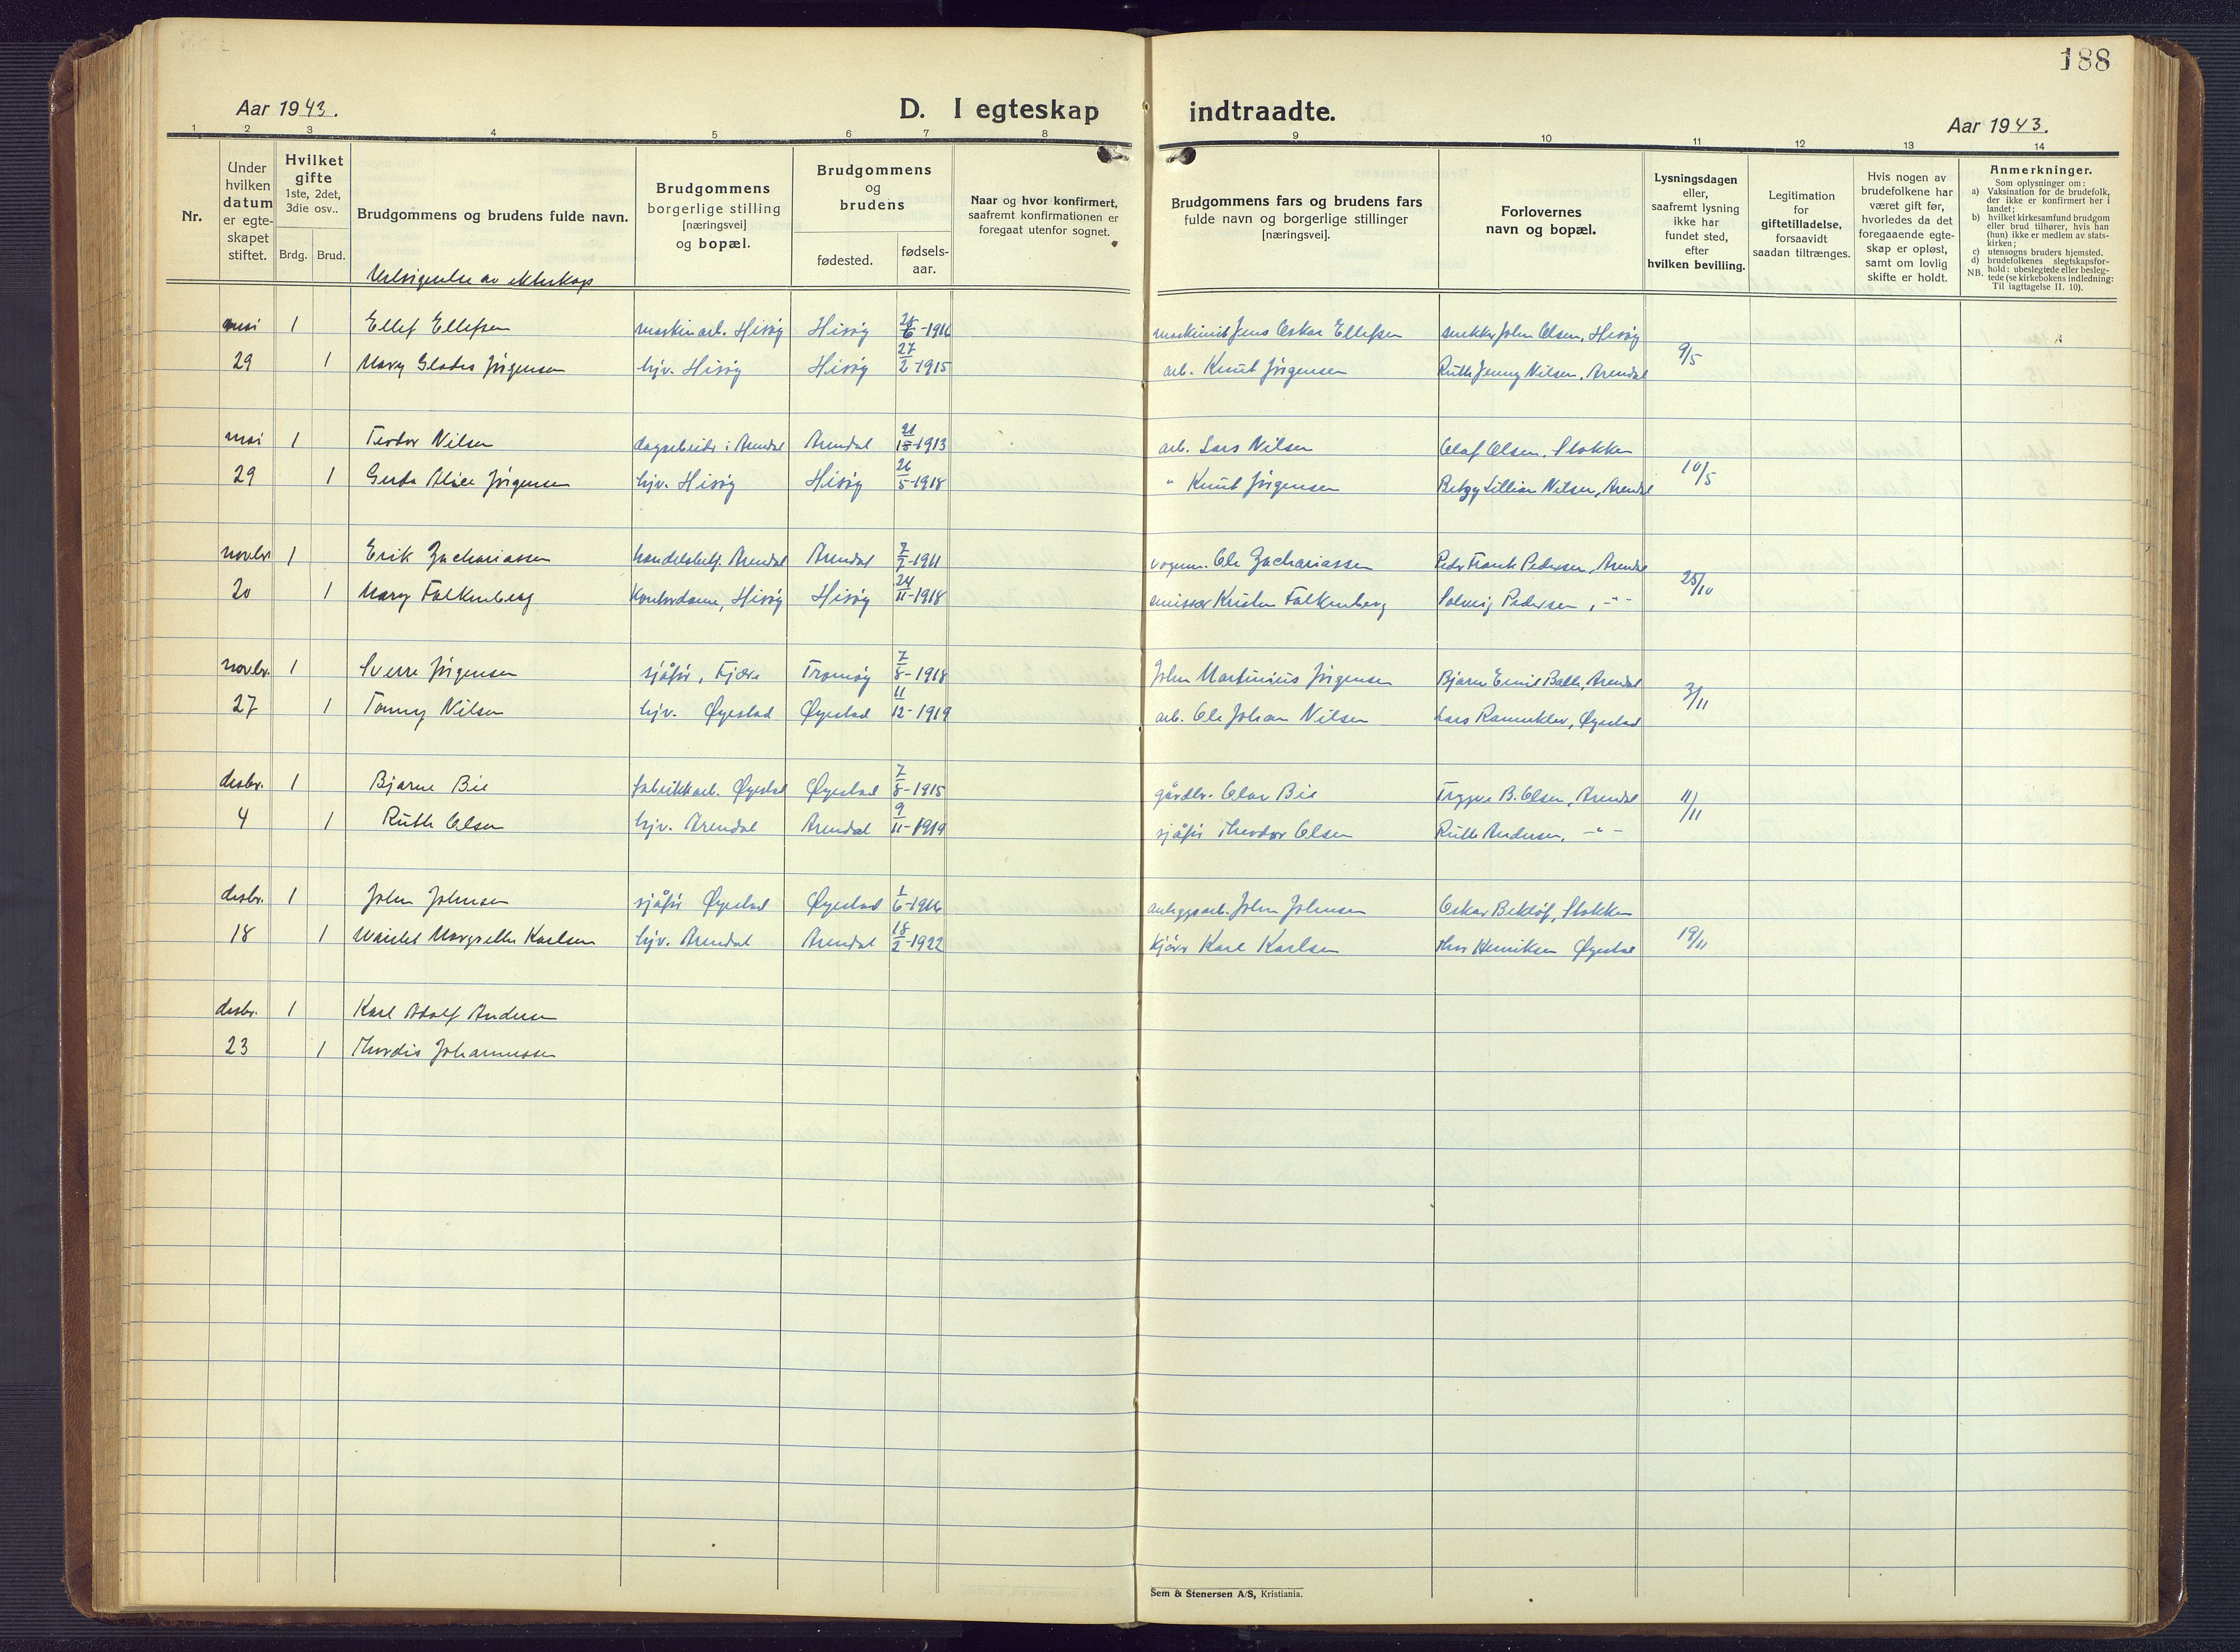 188
Aar 1943.
D. I egteskap indtraadte.
Aar 1943.
1 2 3 4 5 6 7 8 9 10 11 12 13 14
Nr.
Under hvilken datum er egte-skapet stiftet.
Hvilket gifte 1ste, 2det, 3die osv..
Brdg. Brud.
Brudgommens og brudens fulde navn.
Brudgommens borgerlige stilling [næringsvei] og bopæl.
Brudgommens og brudens
fødested. fødsels-aar.
Naar og hvor konfirmert, saafremt konfirmationen er foregaat utenfor sognet.
Brudgommens fars og brudens fars fulde navn og borgerlige stillinger [næringsvei].
Forlovernes navn og bopæl.
Lysningsdagen eller, saafremt lysning ikke har fundet sted, efter hvilken bevilling.
Legitimation for giftetilladelse, forsaavidt saadan tiltrænges.
Hvis nogen av brudefolkene har været gift før, hvorledes da det foregaaende egte-skap er opløst, samt om lovlig skifte er holdt.
Anmerkninger.
Som oplysninger om:
a) Vaksination for de brudefolk, der ikke er konfirmert her i landet;
b) hvilket kirkesamfund brudgom eller brud tilhører, hvis han (hun) ikke er medlem av stats-kirken;
c) utensogns bruders hjemsted.
d) brudefolkenes slegtskapsfor-hold: ubeslegtede eller besleg-tede (se kirkebokens indledning:
NB. Til iagttagelse II. 10).
Velsignelse av ekteskap
mai 1 Ellef Ellefsen maskinarb. Hisöy Hisöy 6-1916 maskinist Jens Oskar Ellefsen snekker John Olsen, Hisöy
29 1 Mary Glades Jörgensen hjv. Hisöy Hisöy 27/2-1915 arb. Knut Jörgensen Ruth Jenny Nilsen, Arendal 9/5
mai 1 Teodor Nilsen i Arendal Arendal 1913 arb. Lars Nilsen Olaf Olsen, Stokken
29 1 Gerda Alice Jörgensen hjv. Hisöy Hisöy 26/5-1918 " Knut Jörgensen Betzy Lillian Nilsen, Arendal 10/5
novbr 1 Erik Zachariassen handelsbetj. Arendal Arendal 1911 vognm. Ole Zachariassen Peder Frank Pedersen, Arendal
20 1 Mary Falkenberg Kontordame, Hisöy Hisöy 24/11-1918 emissær Kristen Falkenberg Solveig Pedersen, -"- 25/10
novbr. 1 Sverre Jörgensen sjåför, Fjære Tromöy 7/8-1918 John Martinius Jörgensen Bjarne Emil Balle, Arendal
27 1 Tonny Nilsen hjv. Øyestad Øyestad 11/12-1919 arb. Ole Johan Nilsen Lars Ramnklev, Øyestad 3/11
desbr. 1 Bjarne Bie fabrikkarb. Øyestad Øyestad 7/8-1915 gårdbr. Olav Bie Trygve B. Olsen, Arendal
4 1 Ruth Olsen hjv. Arendal Arendal 9/11-1919 sjåför Theodor Olsen Ruth Andersen, -"- 11/11
desbr. 1 John Johnsen sjåför Øyestad Øyestad 1/6-1916 anleggsarb. John Johnsen Oskar Beklöf, Stokken
18 1 Margrethe Karlsen hjv. Arendal Arendal 18/2-1922 kjörer Karl Karlsen Thor Henriksen Øyestad 19/11
desbr. 1 Karl Adolf Andersen
23 1 Thordis Johannessen
Sem & Stenersen A/S, Kristiania.